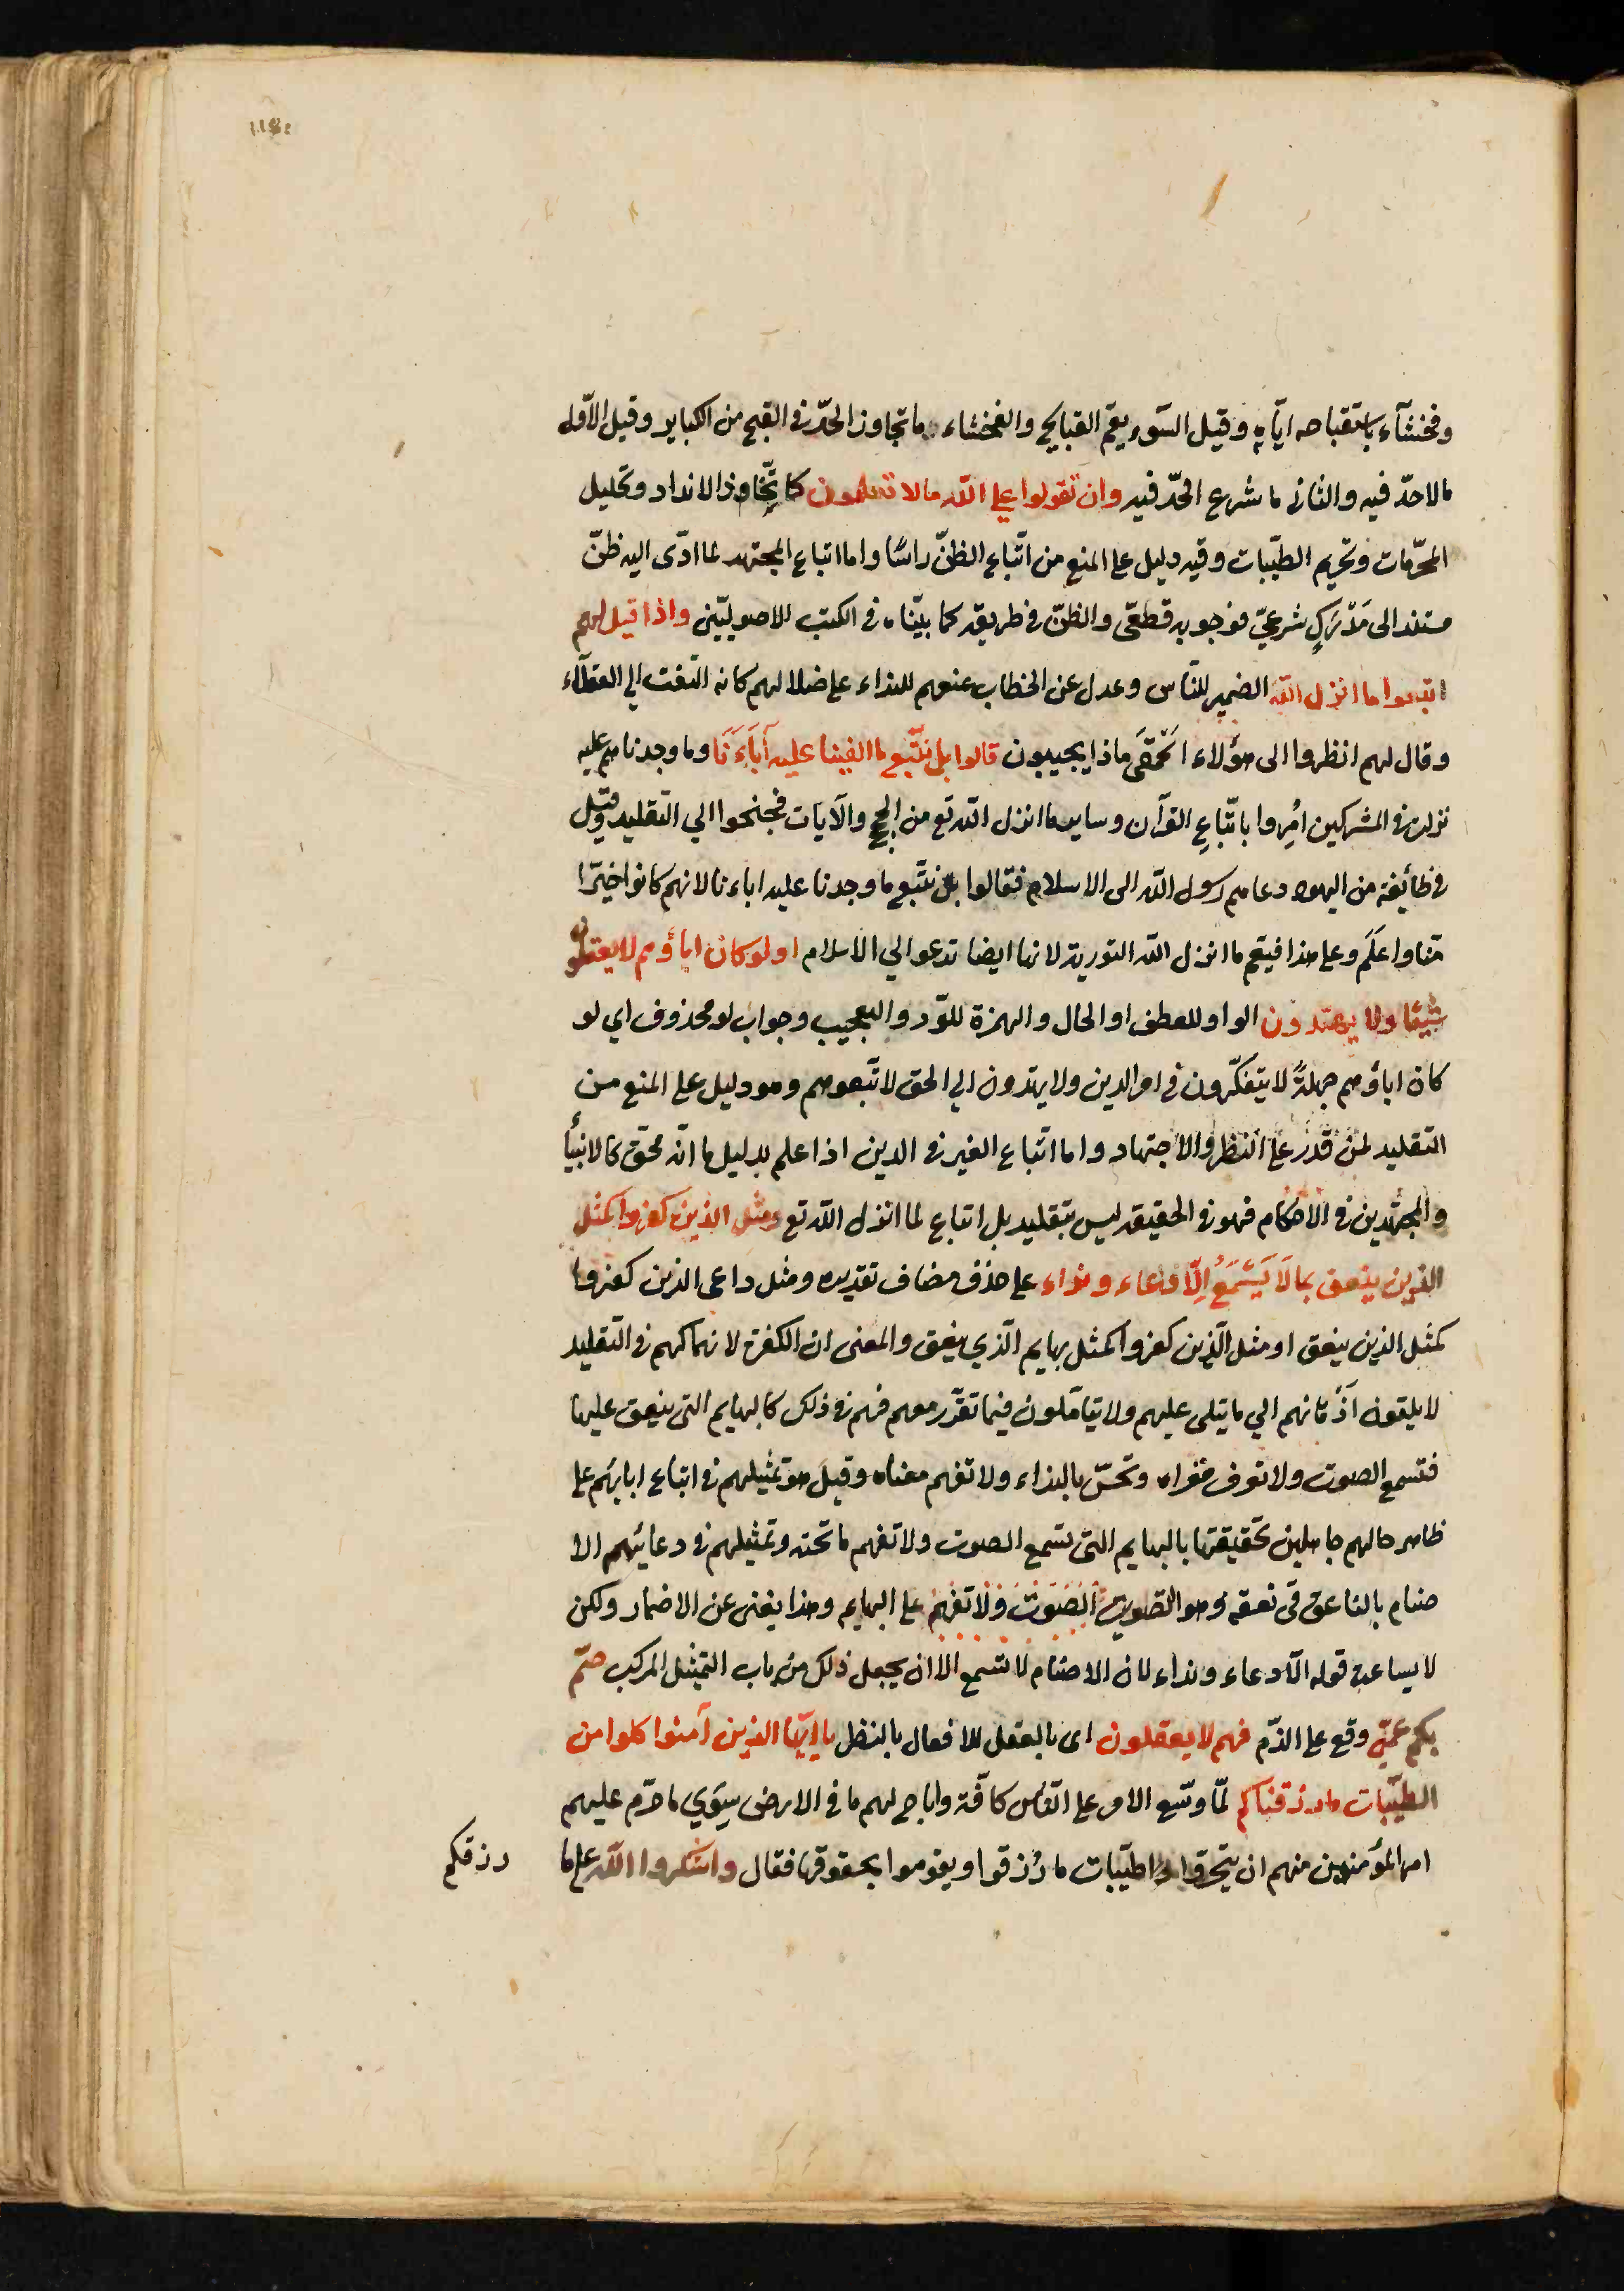 وفحشآء باستقباحه ايّاه وقيل السّوء يعمّ القبايح والفحشاء ما تجاوز الحدّ فى القبح من الكباير وقيل الاوّل
مالا حدّ فيه والثانى ما شرع الحدّ فيه وان تقولوا على الله مالا تعلمون كاتّخاذ الانداد وتحليل
المحرّمات وتحريم الطيّبات وفيه دليل على المنع من اتّباع الظنّ راسًا واما اتباع المجتهد لما ادّى اليه ظنّ
مستند الى مَدْرَكٍ شرعىّ فوجوبه قطعّى والظنّ فى طريقه كما بيّناه فى الكتب الاصوليّين واذا قيل لهم
اتبعوا ما انزل الله الضمير للنّاس وعدل عن الخطاب عنهم للنداء على ضلالهم كانه التفت الى العقلاء
وقال لهم انظروا الى هؤلاء الحَمْقَى ماذا يجيبون قالوا بل نتّبع ما الفينا عليه آبَاءَنَا وما وجدناهم عليه
نزلت فى المشركين اُمِروا باتّباعِ القرآن وساير ما انزل الله تع من الحجج والآيات فجنحوا الي التقليد وقيل
فى طائيفة من اليهود دعاهم رسول الله الى الاسلام فقالوا بل نتّبع ما وجدنا عليه اباءنا لانهم كانوا خيرًا
منّا واعلَم وعلى هذا فيعم ما انزل الله التورية لانها ايضا تدعوا الي الاسلام اولو كان اباؤهم لا يعقلون
شيئا ولا يهتدون الواو للعطف او الحال والهمزة للرّد والتعجيب وجواب لو محذوف اي لو
كان اباؤهم جهلةً لا يتفكّرون فى امر الدين ولا يهتدون الي الحق لاتّبعوهم وهو دليل على المنع من
التقليد لمن قدر على النظر والاجتهاد واما اتّباع الغير فى الدين اذا علم بدليل ما انّه محقّ كالانبيأ
والمجتهدين فى الاحكام فهو فى الحقيقه ليس بتقليد بل اتباع لما انزل الله تع ومثل الذين كفروا كمثل
الذين ينعق بمالَا يَسْمَعُ اِلّا دعاء ونداء على حذف مضاف تقديره ومثل داعى الذين كفروا
كمثل الذين ينعق او مثل الّذين كفروا كمثل بهايم الّذي ينعق والمعنى ان الكفرة لانهماكهم فى التّقليد
لا يلقون آذانهم الي ما يتلى عليهم ولا يتاملون فيما تقرّر معهم فهم فى ذلك كالبهايم التى ينعق عليها
فتسمع الصوت ولا تعرف مغزاه وتحسّ بالنداء ولا تفهم معناه وقيل هو تمثيلهم فى اتباع ابايهم على
ظاهر حالهم جاهلين تحقيقتها بالبهايم التى تسمع الصوت ولا تفهم ما تحته وتمثيلهم فى دعائيهم الا
صنام بالناعق فى نعقه وهو التصويت الصَوتَ ولا تفهم على البهايم وهذا يغنى عن الاضمار ولكن
لا يساعده قوله الّا دعاء ونداء لان الاصنام لا تسمع الا ان يجعل ذلك من باب التمثيل المركب صمّ
بكم عمىٌ وقع على الذّم فهم لا يعقلون اى بالعقل للافعال بالنظر يا ايّها الذين آمنوا كلوا من
الطيّبات ما رزقناكم لمّا وسّع الامر على النّاس كافّة واباح لهم ما فى الارض سِوَي ما حرّم عليهم
امر المؤمنين منهم ان يتحرّوا اطيّبات ما رُزقوا ويقوموا بحقوقها فقال واشكروا الله على ما
رزقكم